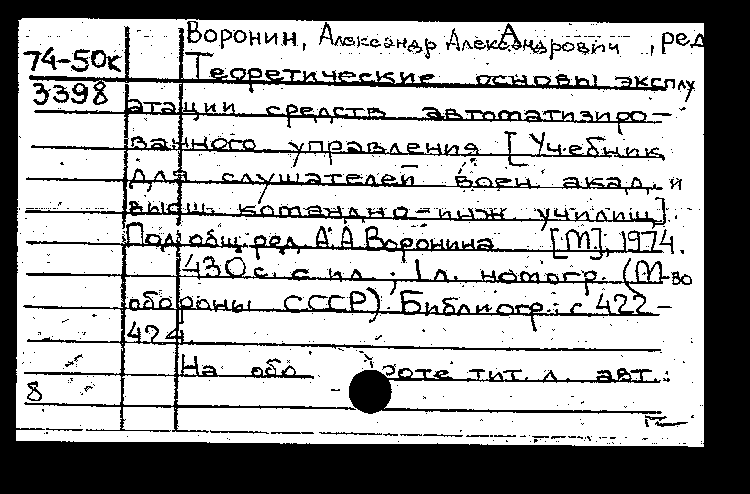 Воронин, Александр Александрович, ред
74-50к
Теоретические основы эксплу
3398
атации средств автоматизиро-
ванного управления [Учебник
для слушателей воен. акад. и
высш. командно-инж училищ].
Под общ. ред А.А Воронина [М], 1974.
430 с. с ил.; 1 л. номогр. (М-во
обороны СССР) Библиогр.: с 422-
424.
На обо роте тит. л. авт.:
8